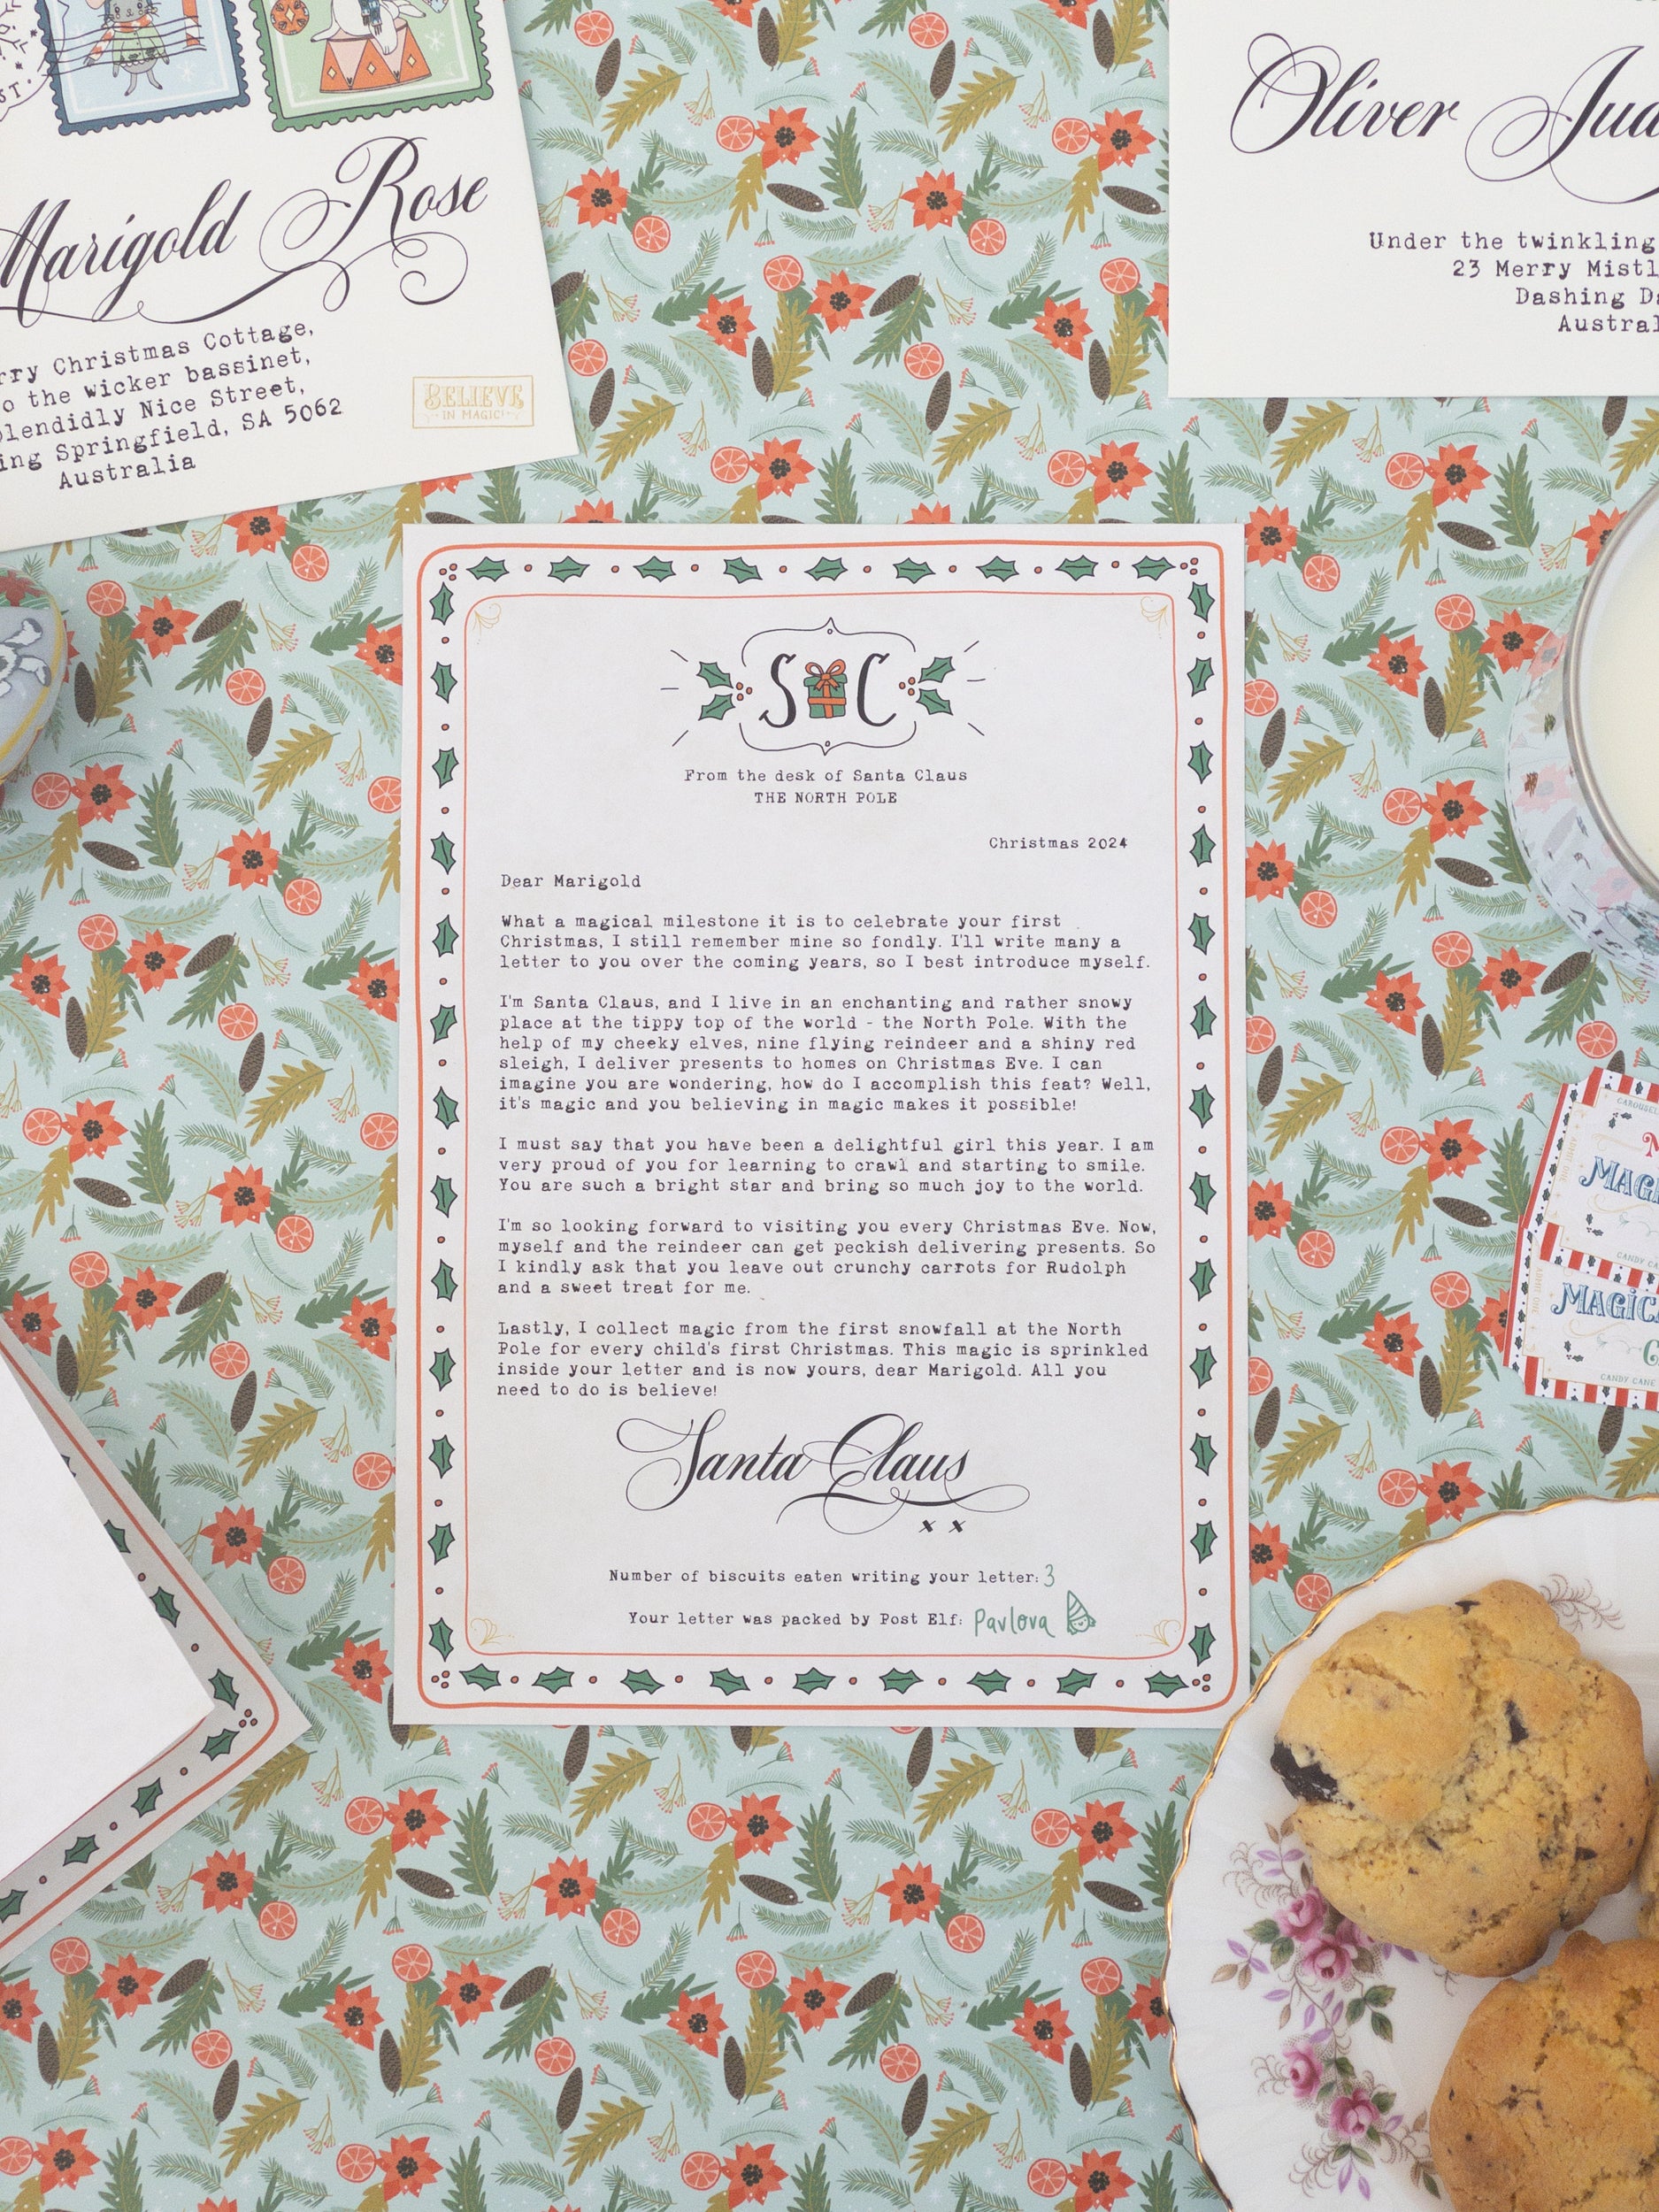 Marigold Rose
Christmas Cottage,
the wicker bassinet,
Nice Street,
Springfield, SA 5062
Australia
BELIEVE
IN MAGIC!
Oliver
Under the twinkling
23 Merry
Dashing
S C
From the desk of Santa Claus
THE NORTH POLE
Christmas 2024
Dear Marigold
What a magical milestone it is to celebrate your first
Christmas, I still remember mine so fondly. I'll write many a
letter to you over the coming years, so I best introduce myself.
I'm Santa Claus, and I live in an enchanting and rather snowy
place at the tippy top of the world - the North Pole. With the
help of my cheeky elves, nine flying reindeer and a shiny red
sleigh, I deliver presents to homes on Christmas Eve. I can
imagine you are wondering, how do I accomplish this feat? Well,
it's magic and you believing in magic makes it possible!
I must say that you have been a delightful girl this year. I am
very proud of you for learning to crawl and starting to smile.
You are such a bright star and bring so much joy to the world.
I'm so looking forward to visiting you every Christmas Eve. Now,
myself and the reindeer can get peckish delivering presents. So
I kindly ask that you leave out crunchy carrots for Rudolph
and a sweet treat for me.
Lastly, I collect magic from the first snowfall at the North
Pole for every child's first Christmas. This magic is sprinkled
inside your letter and is now yours, dear Marigold. All you
need to do is believe!
Santa Claus
x x
Number of biscuits eaten writing your letter: 3
Your letter was packed by Post Elf: Pavlova
CANDY CANE